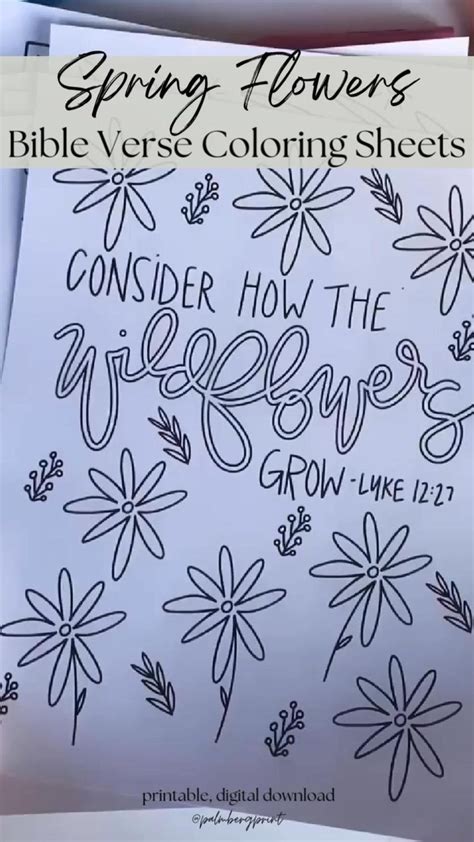 Spring Flowers
Bible Verse Coloring Sheets
CONSIDER HOW THE
Wildflowers
GROW - LUKE 12:27
printable, digital download
@palmbergprint